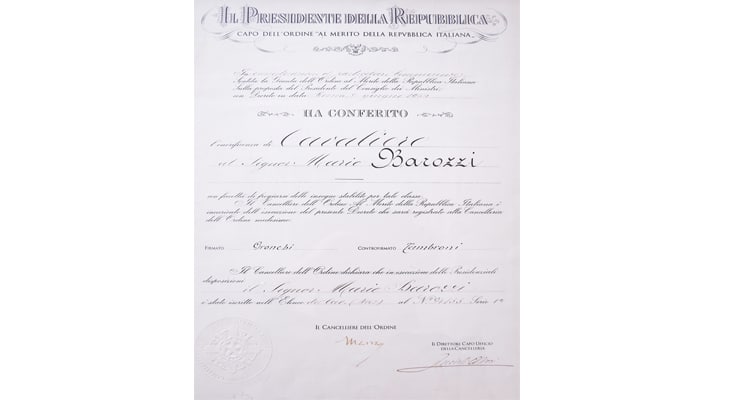 IL PRESIDENTE DELLA REPUBBLICA
CAPO DELL'ORDINE "AL MERITO DELLA REPVBBLICA ITALIANA"
Sentita la Giunta dell'Ordine al Merito della Repubblica Italiana
Sulla proposta del Presidente del Consiglio dei Ministri
con Decreto in data
HA CONFERITO
l'onorificenza di Cavaliere
al Signor Mario Barozzi
con facoltà di fregiarsi delle insegne stabilite per tale classe.
Il Cancelliere dell'Ordine Al Merito della Repubblica Italiana è
incaricato dell'esecuzione del presente Decreto che sarà registrato alla Cancelleria
dell'Ordine medesimo.
FIRMATO Gronchi CONTROFIRMATO Tambroni
Il Cancelliere dell'Ordine dichiara che in esecuzione delle Presidenziali
disposizioni
il Signor Mario Barozzi
è stato iscritto nell'Elenco
al N°
Serie
IL CANCELLIERE DELL'ORDINE
IL DIRETTORE CAPO UFFICIO
DELLA CANCELLERIA